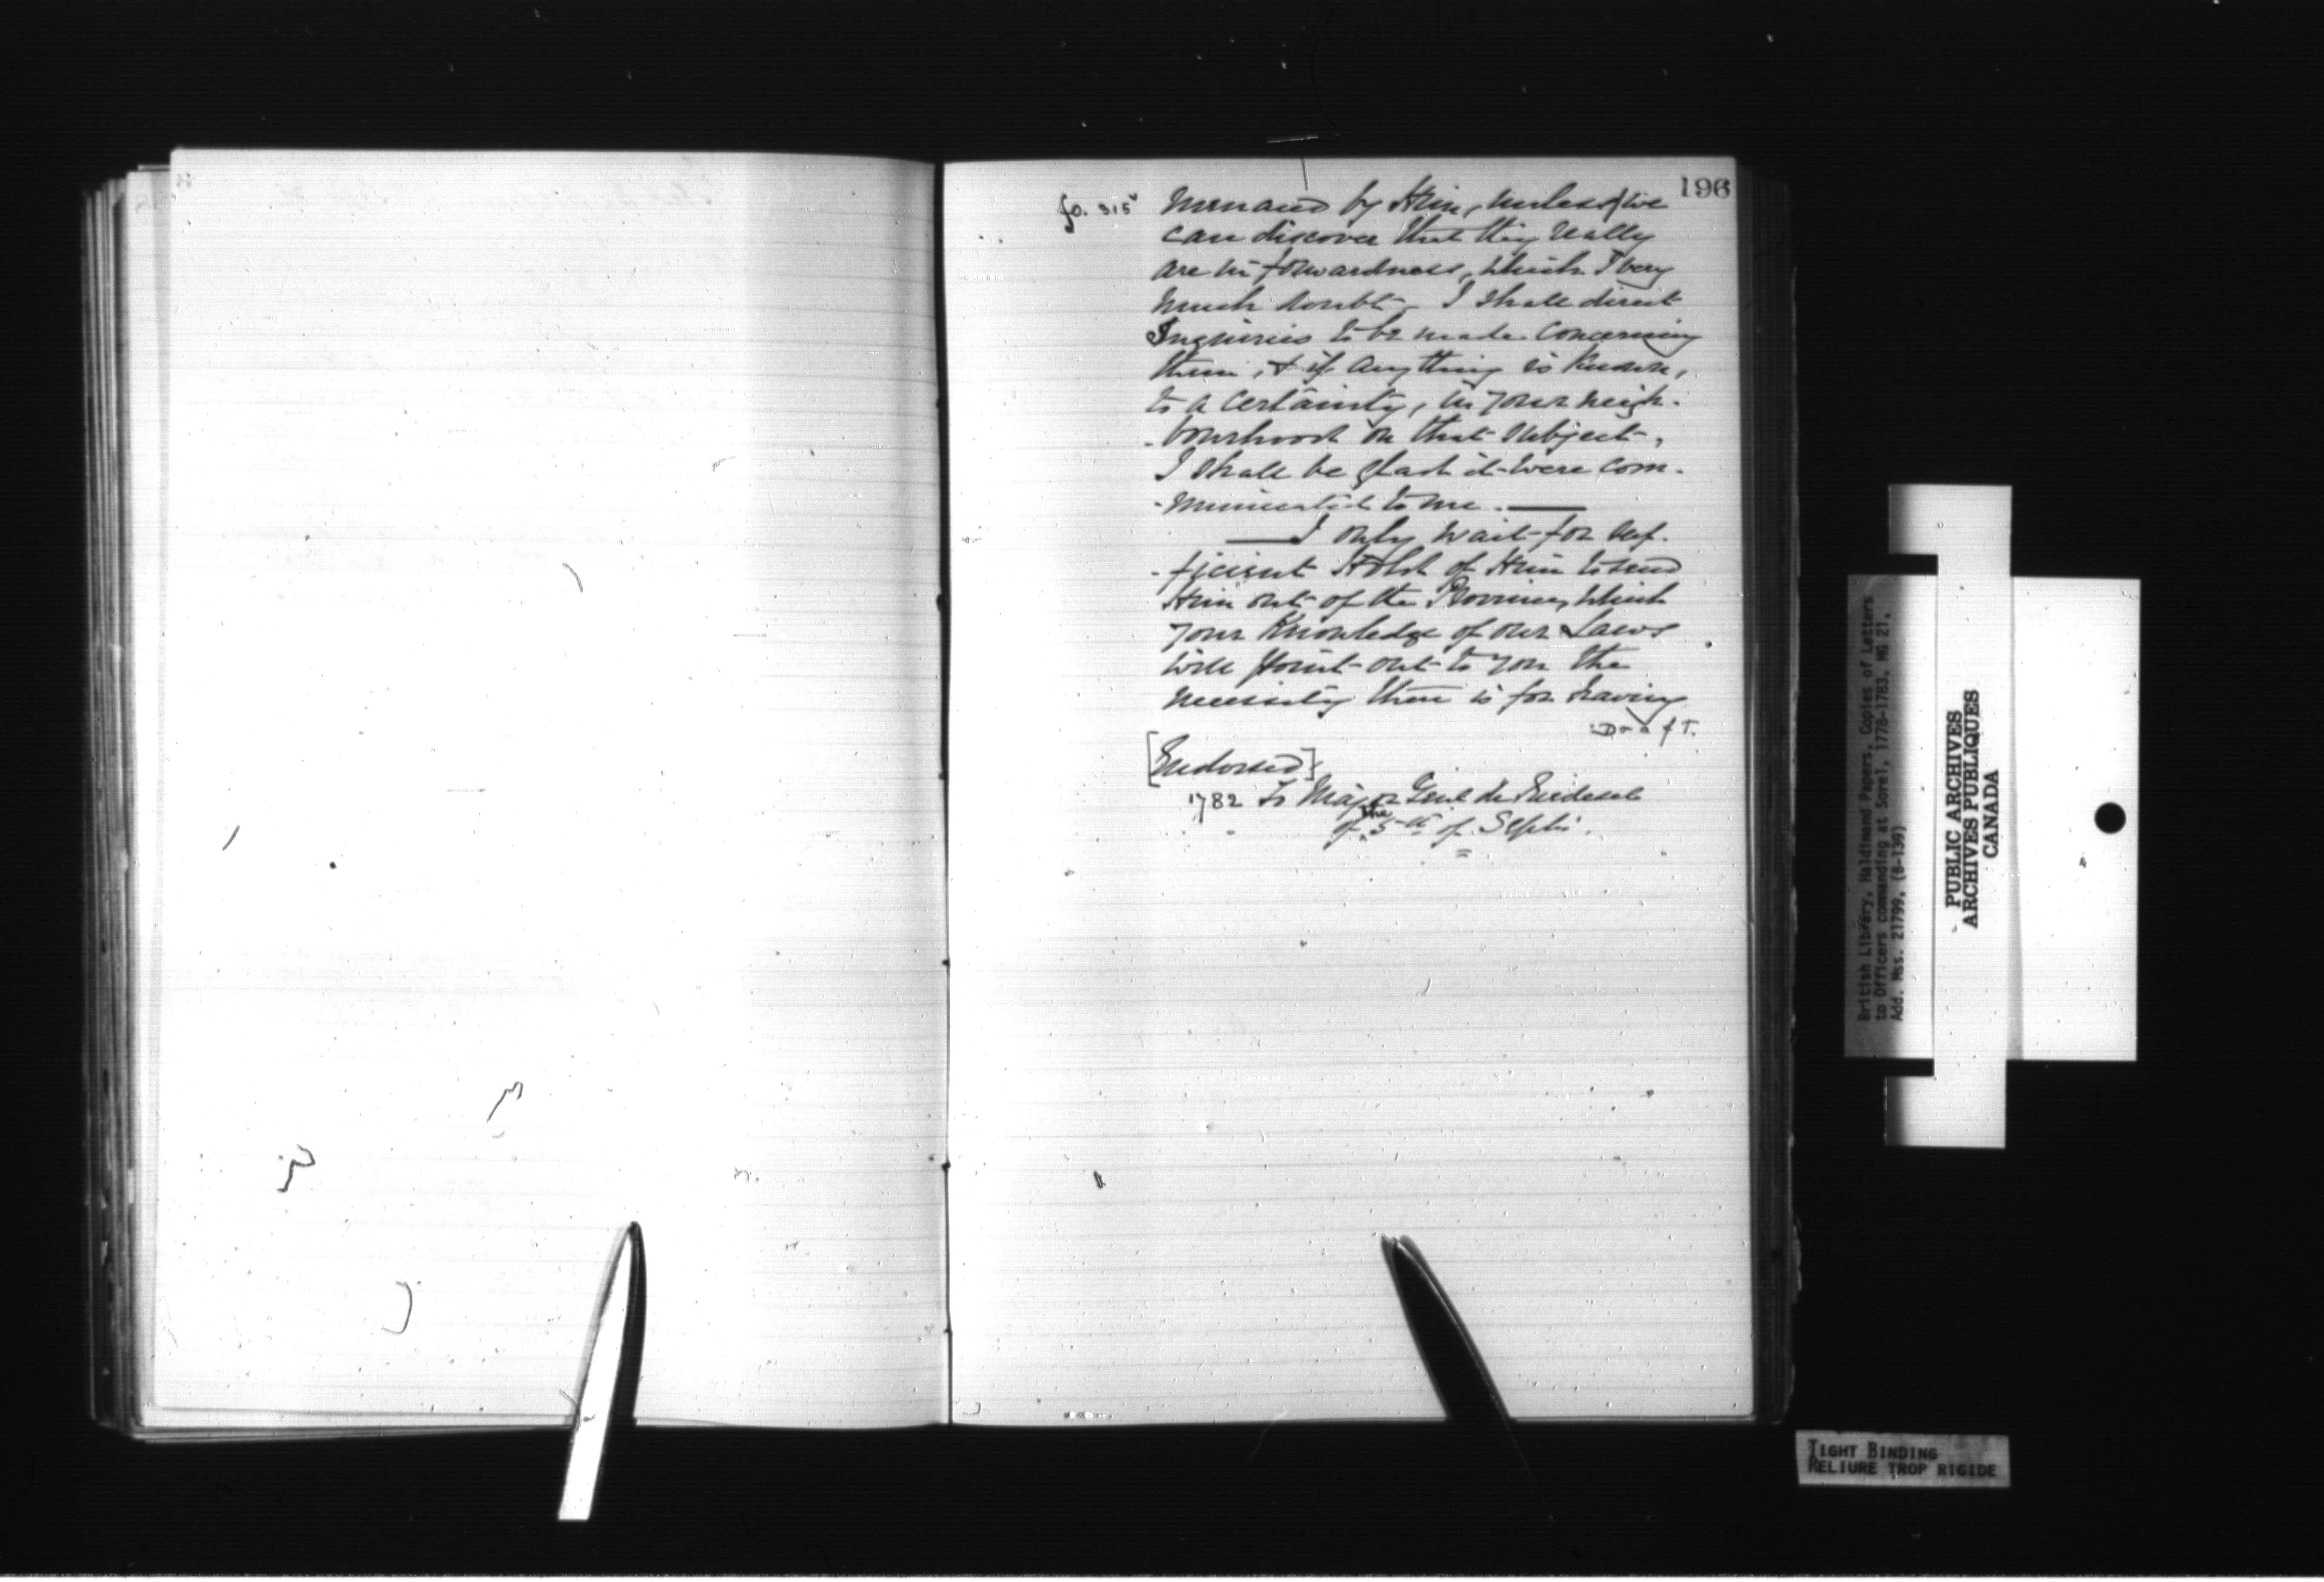 196
fo. 315v
menaced by Him, unless we
can discover that they really
are in forwardness, which I very
much doubt - I shall direct
Inquiries to be made concerning
them, & if anything is known,
to a certainty, in your neigh-
-bourhood on that subject,
I shall be glad it were com-
-municated to me. —
— I only wait for suf-
-ficient Hold of Him to send
Him out of the Province, which
your Knowledge of our Laws
will point out to you the
necessity there is for having
Draft.
[Endorsed]
1782 To Major Genl de Riedesel
of the 5th of Septr.
British Library, Haldimand Papers, Copies of Letters
to Officers commanding at Sorel, 1778-1783, MG 21,
Add. Mss. 21799, (B-139)
PUBLIC ARCHIVES
ARCHIVES PUBLIQUES
CANADA
TIGHT BINDING
RELIURE TROP RIGIDE